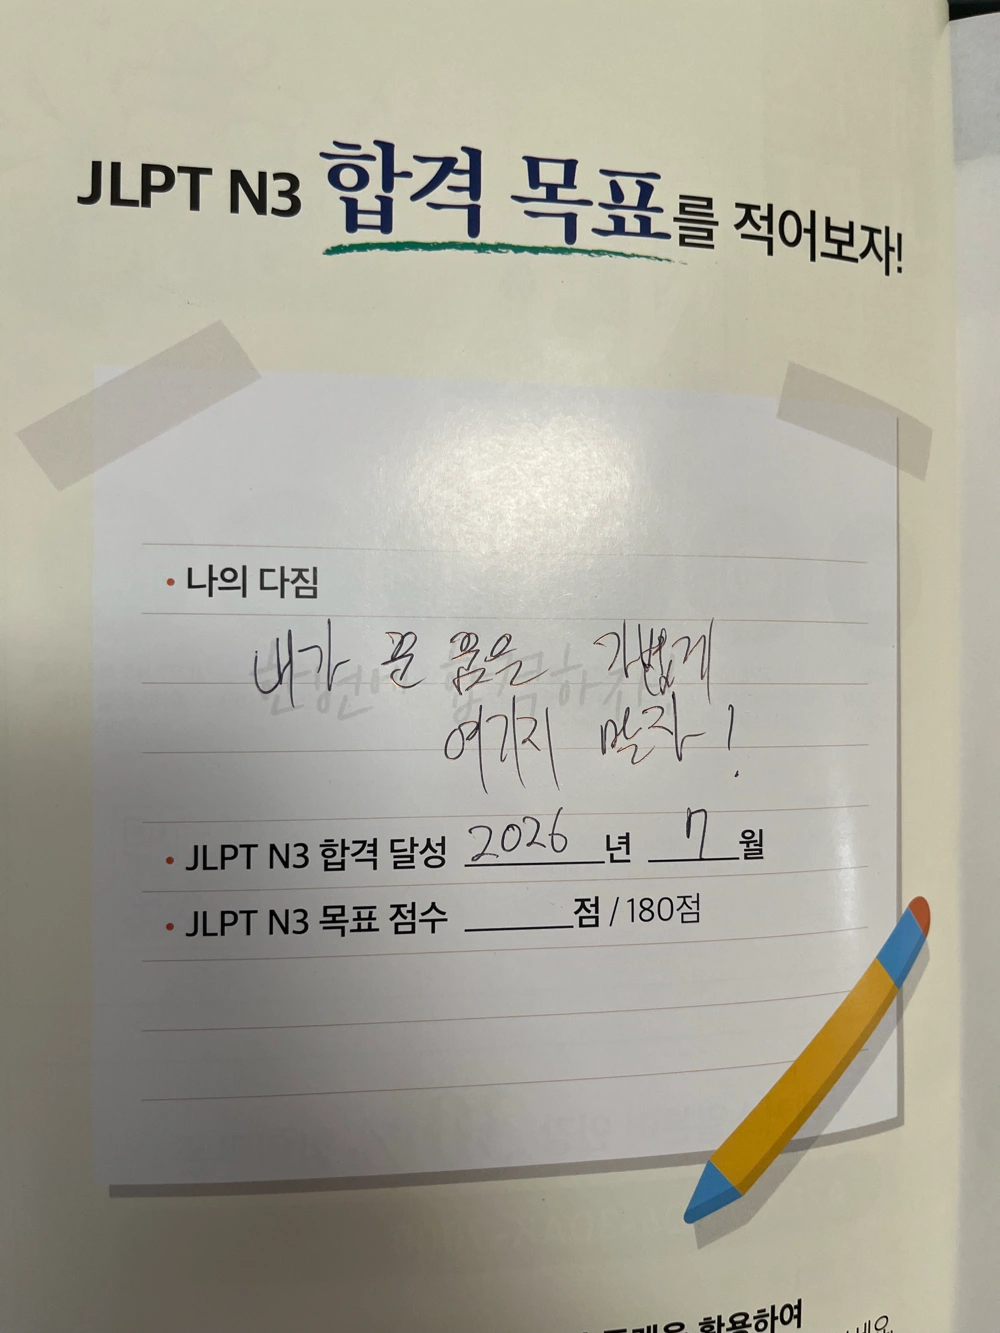 JLPT N3 합격 목표를 적어보자!
• 나의 다짐
내가 꾼 꿈은 가볍게
여기지 말자!
• JLPT N3 합격 달성 2026 년 7 월
• JLPT N3 목표 점수 ______점 / 180점
활용하여
세요